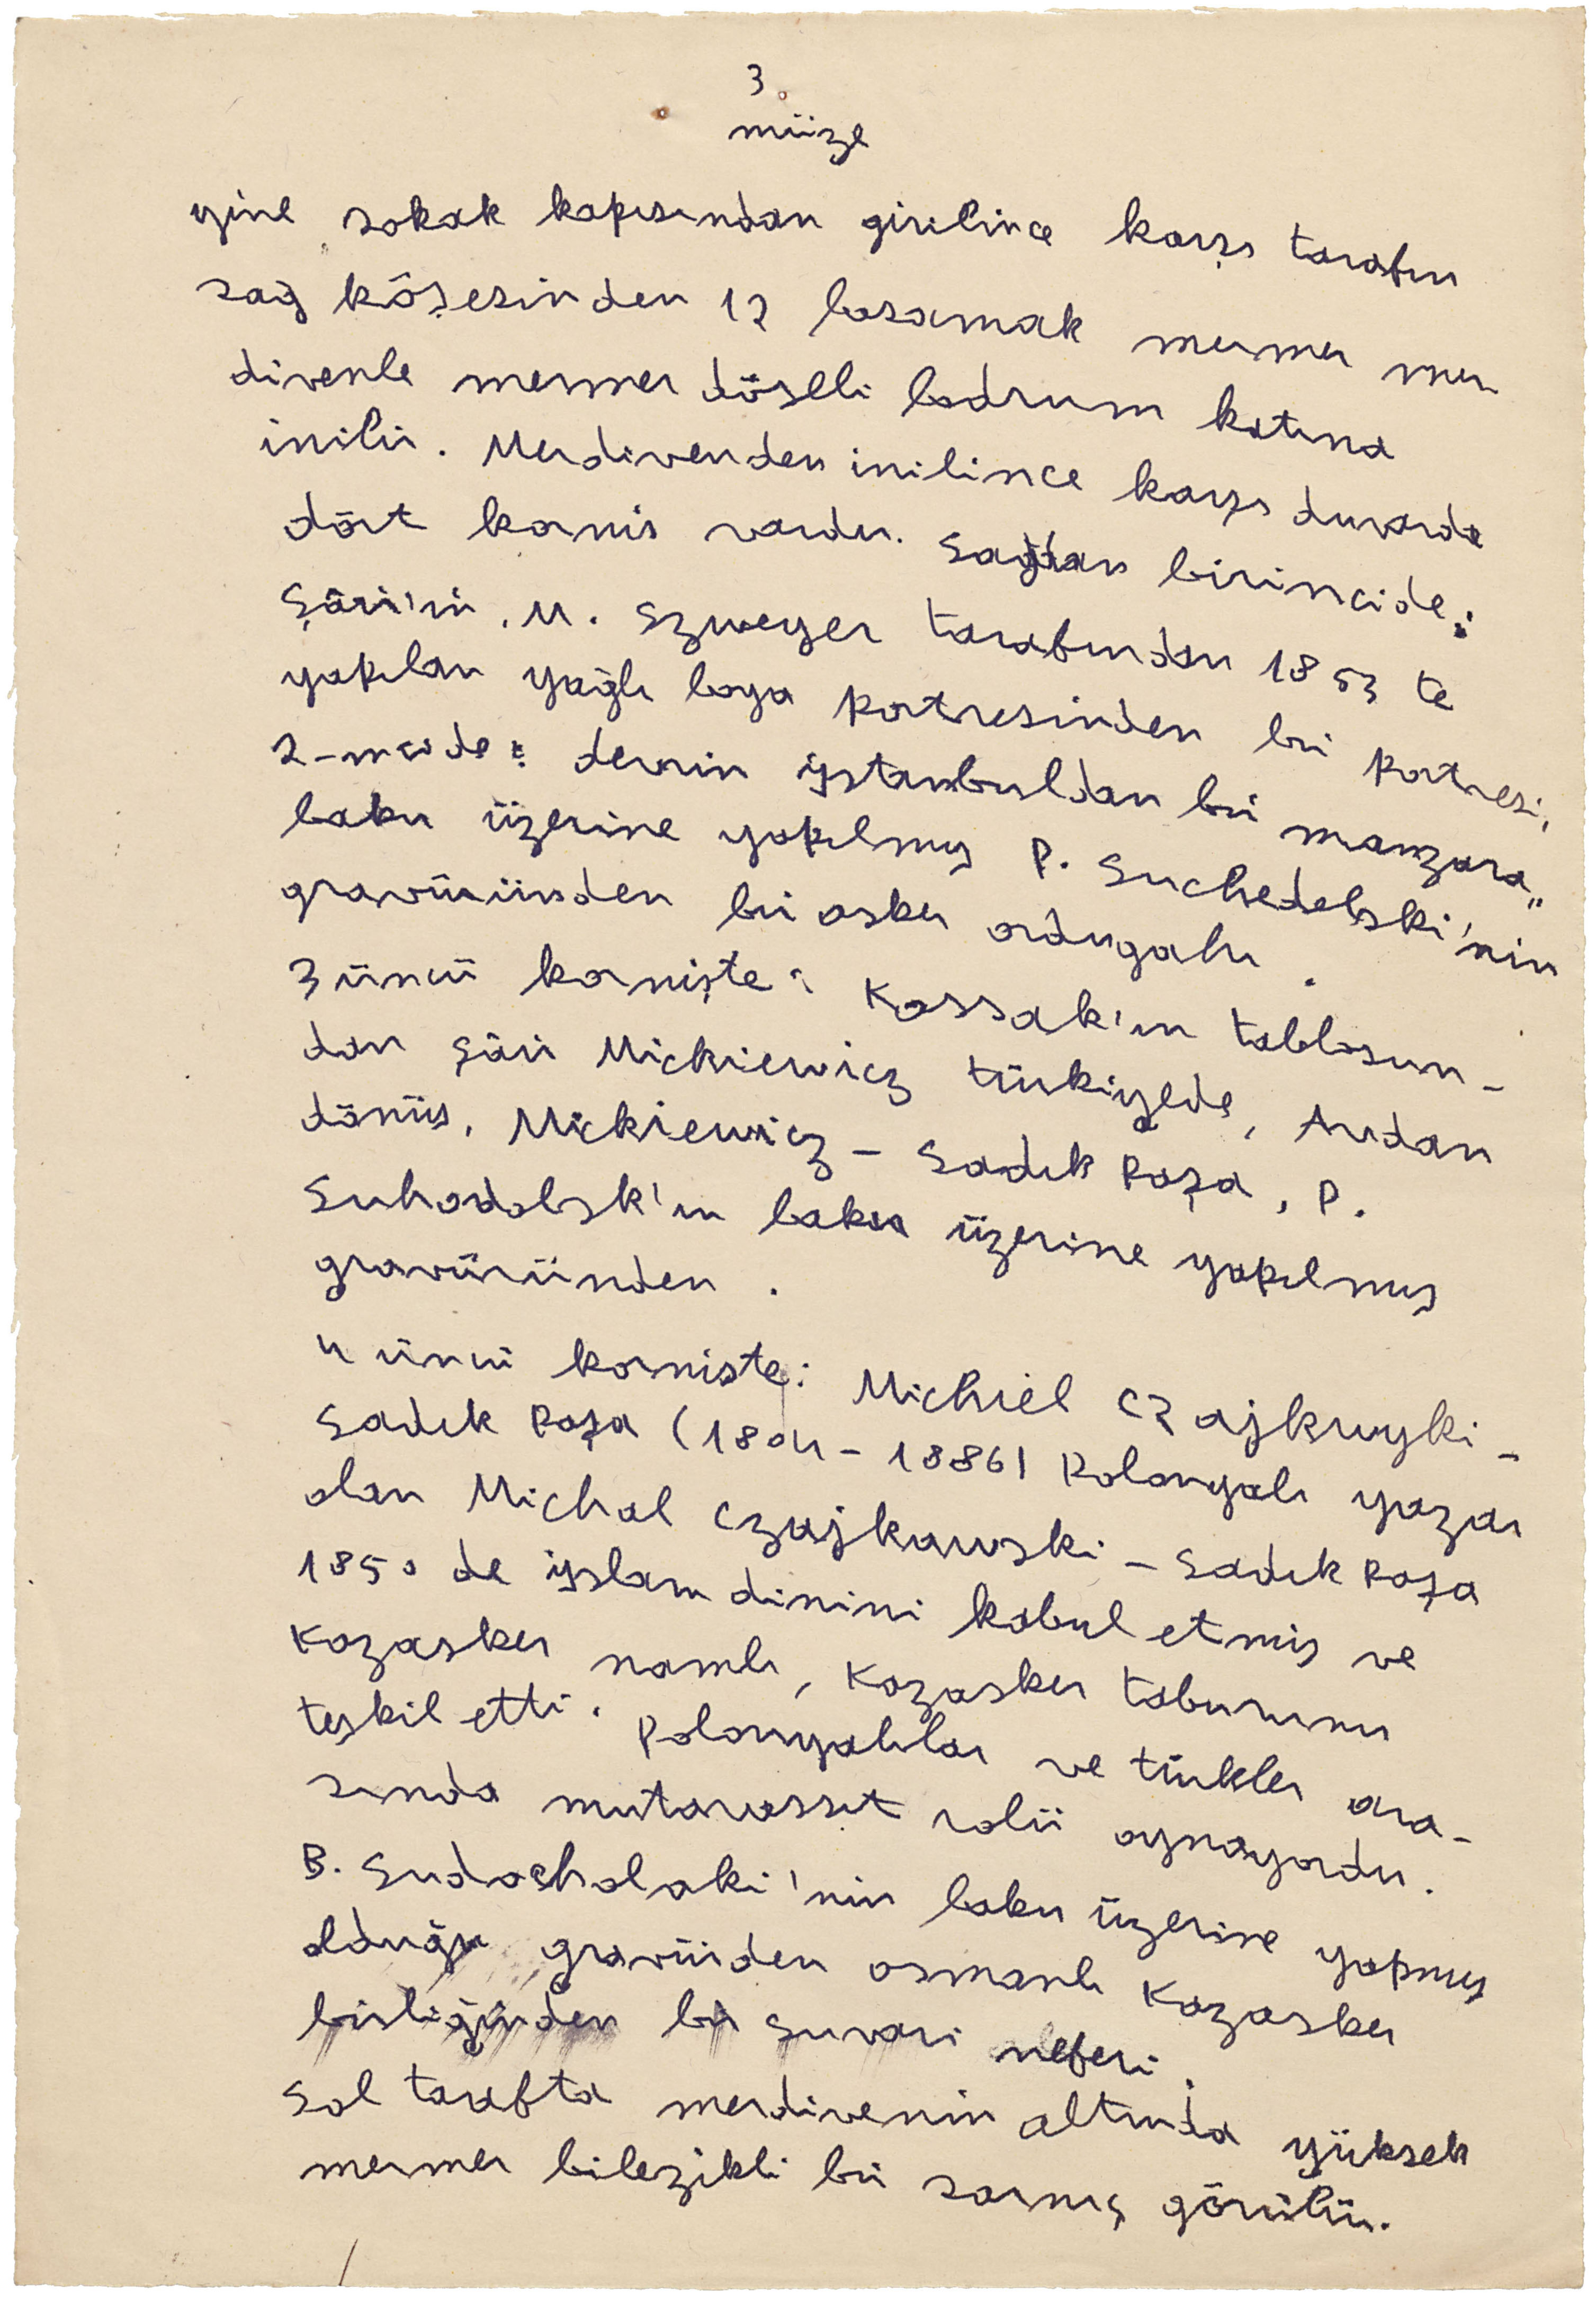 3.
müze
yine sokak kapısından girilince karşı tarafın
sağ köşesinden 12 basamak mermer mer
divenle mermer döşeli bodrum katına
inilir. Merdivenden inilince karşı duvarda
dört kornis vardır. Sağdan birincide:
Şâir'in, M. Szweyer tarafından 1853 te
yapılan yağlı boya portresinden bir portresi,
2-ncide: devrin İstanbuldan bir manzara,,
bakır üzerine yapılmış P. Suchedolski'nin
gravüründen bir asker ordugahı.
3 üncü kornişte: Kossak'ın tablosun-
dan şâir Mickiewicz türkiyede, Avdan
dönüş, Mickiewicz - Sadık Paşa, P.
Suhodolsk'ın bakır üzerine yapılmış
gravüründen.
4 üncü korniste: Michiel Czajkwyki -
Sadık Paşa (1804-1886) Polonyalı yazar
olan Michal Czajkawski - Sadık Paşa
1850 de islam dinini kabul etmiş ve
Kozasker namlı, Kozasker taburunu
teşkil etti. Polonyalılar ve türkler ara-
sında mutavassıt rolü oynayordu.
B. Sudocholaki'nin bakır üzerine yapmış
olduğu gravürden osmanlı Kozasker
birliğinden bir suvari neferi.
Sol tarafta merdivenin altında yüksek
mermer bilezikli bir sarnış görülür.